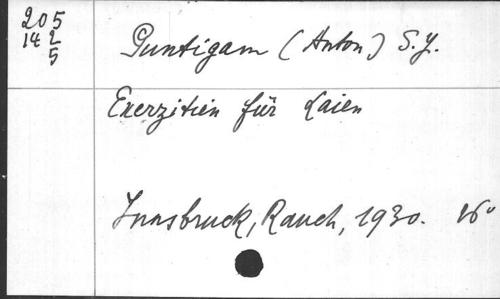 205
14 2
5
Puntigam (Anton) S.J.
Exerzitien für Laien
Innsbruck, Rauch, 1930. 16°